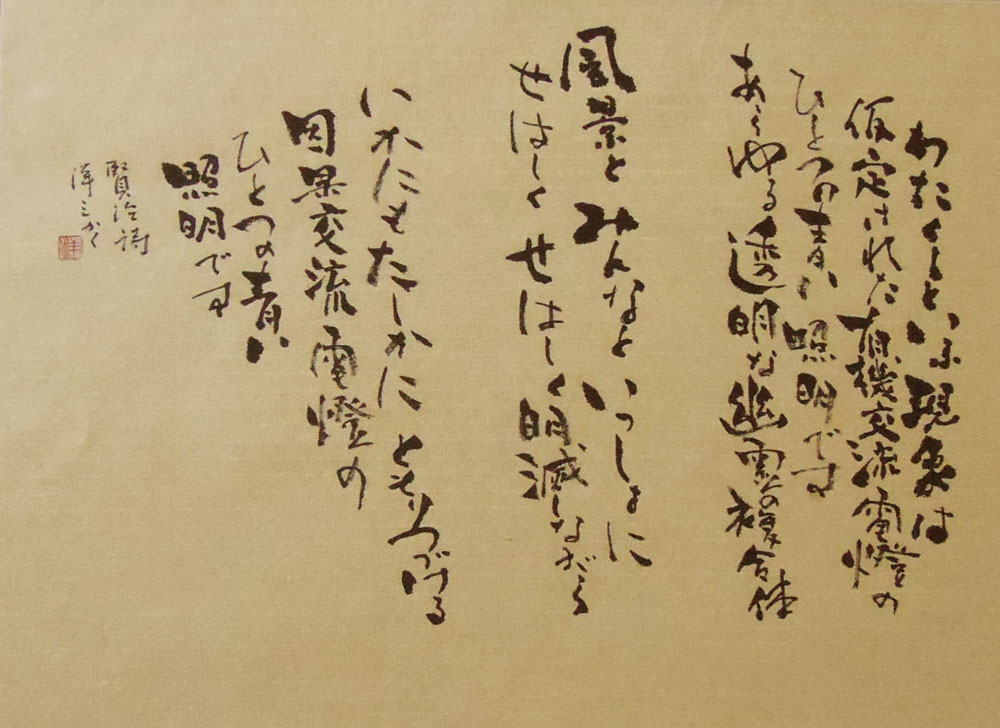 わたくしといふ現象は
仮定された有機交流電燈の
ひとつの青い照明です
あらゆる透明な幽霊の複合体
風景とみんなといっしょに
せはしくせはしく明滅しながら
いかにもたしかにともりつづける
因果交流電燈の
ひとつの青い
照明です
賢治詩
洋三かく
洋